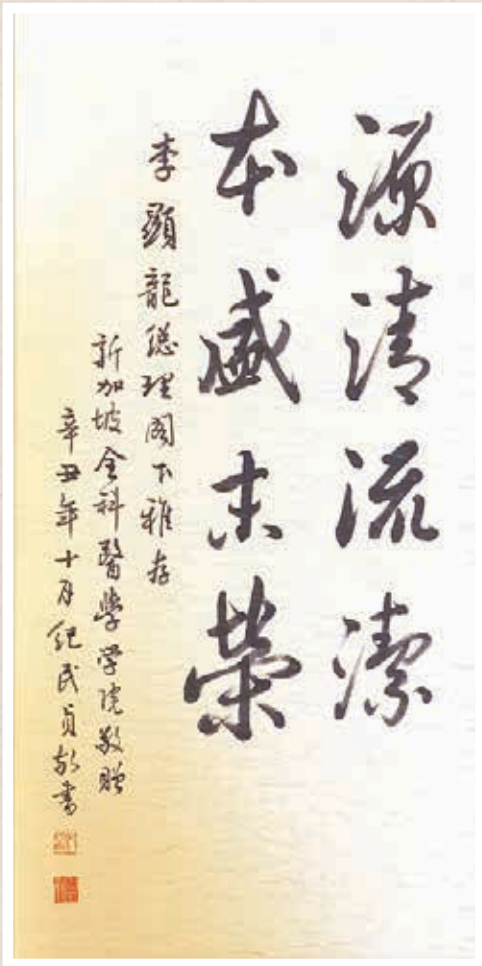 源清流潔
本盛末榮
李顯龍總理閣下雅存
新加坡全科醫學学院敬贈
辛丑年十月纪民貞敬書